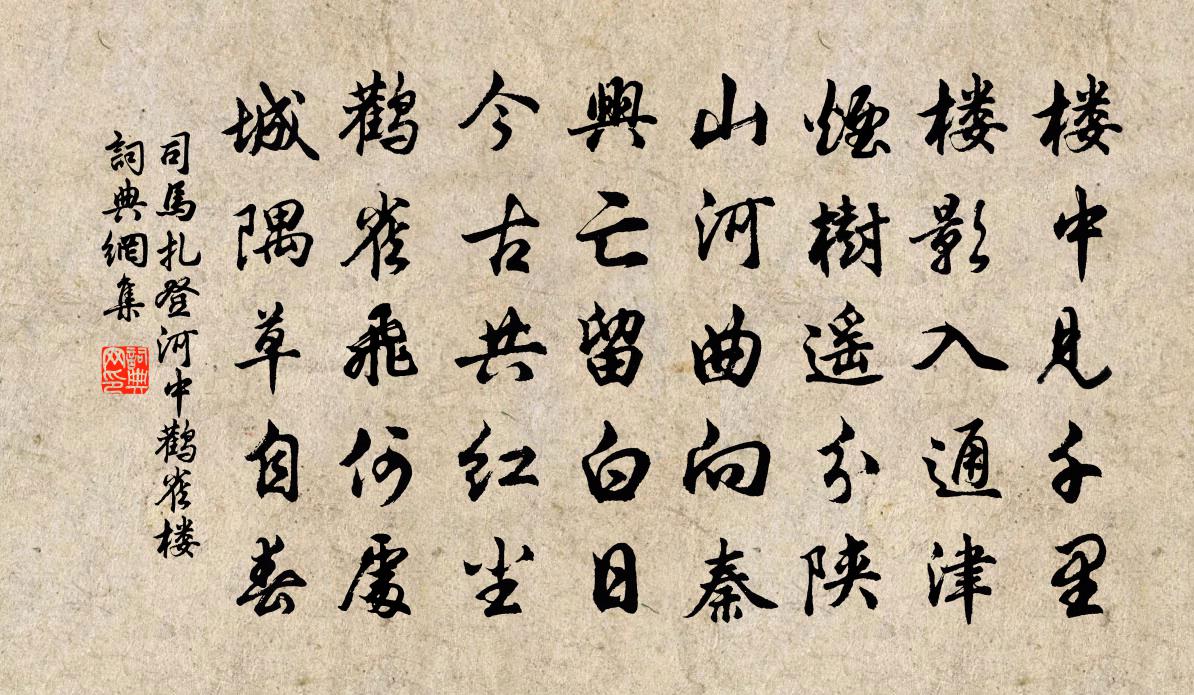 楼中见千里
楼影入通津
煙樹遥分陕
山河曲向秦
興亡留白日
今古共红尘
鹳雀飛何處
城隅草自春
司馬扎登河中鹳雀楼
詞典網集
詞典网印